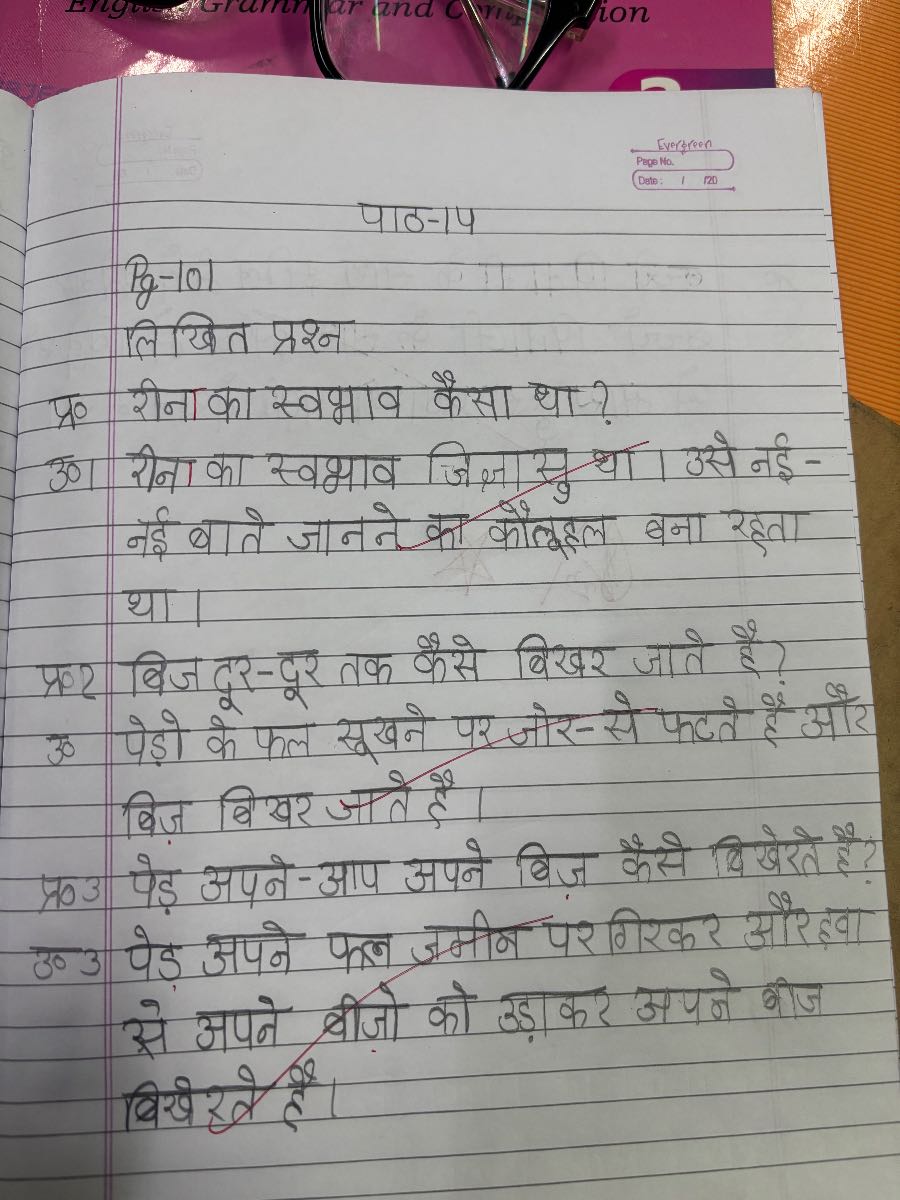 English Grammar and Composition
Evergreen
Page No.
Date : / /20
पाठ-14
Pg-101
लिखित प्रश्न
प्र० रीना का स्वभाव कैसा था ?
उ०1 रीना का स्वभाव जिज्ञासु था । उसे नई-
नई बाते जानने का कौतूहल बना रहता
था ।
प्र०२ बिज दूर-दूर तक कैसे बिखर जाते है ?
उ० पेड़ो के फल सूखने पर जोर-से फटते हैं और
बिज़ बिखर जाते हैं ।
प्र०3 पेड़ अपने-आप अपने बिज़ कैसे बिखेरते हैं ?
उ०3 पेड़ अपने फल जमीन पर गिरकर और हवा
से अपने बीजो को उड़ाकर अपने बीज
बिखेरते हैं ।